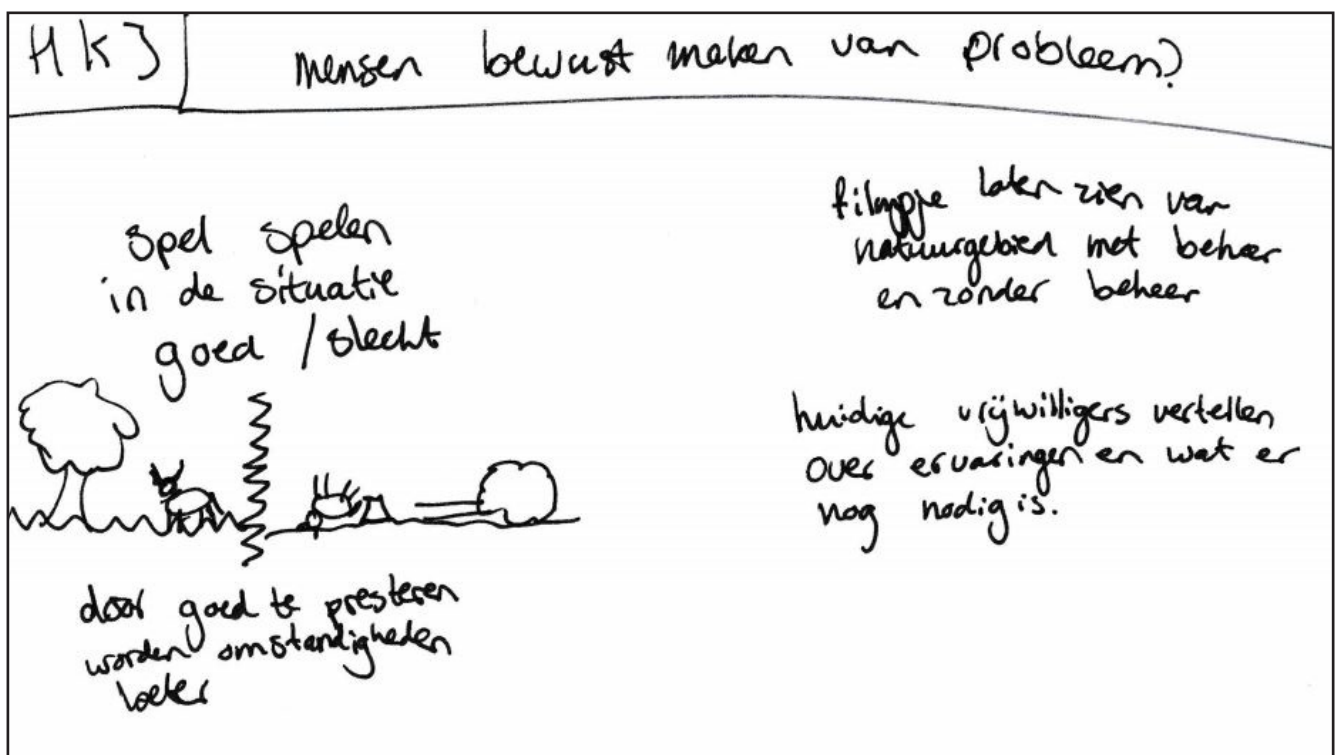 HKJ
mensen bewust maken van probleem?
spel spelen
in de situatie
goed / slecht
door goed te presteren
worden omstandigheden
beter
filmpje laten zien van
natuurgebied met beheer
en zonder beheer
huidige vrijwilligers vertellen
over ervaringen en wat er
nog nodig is.